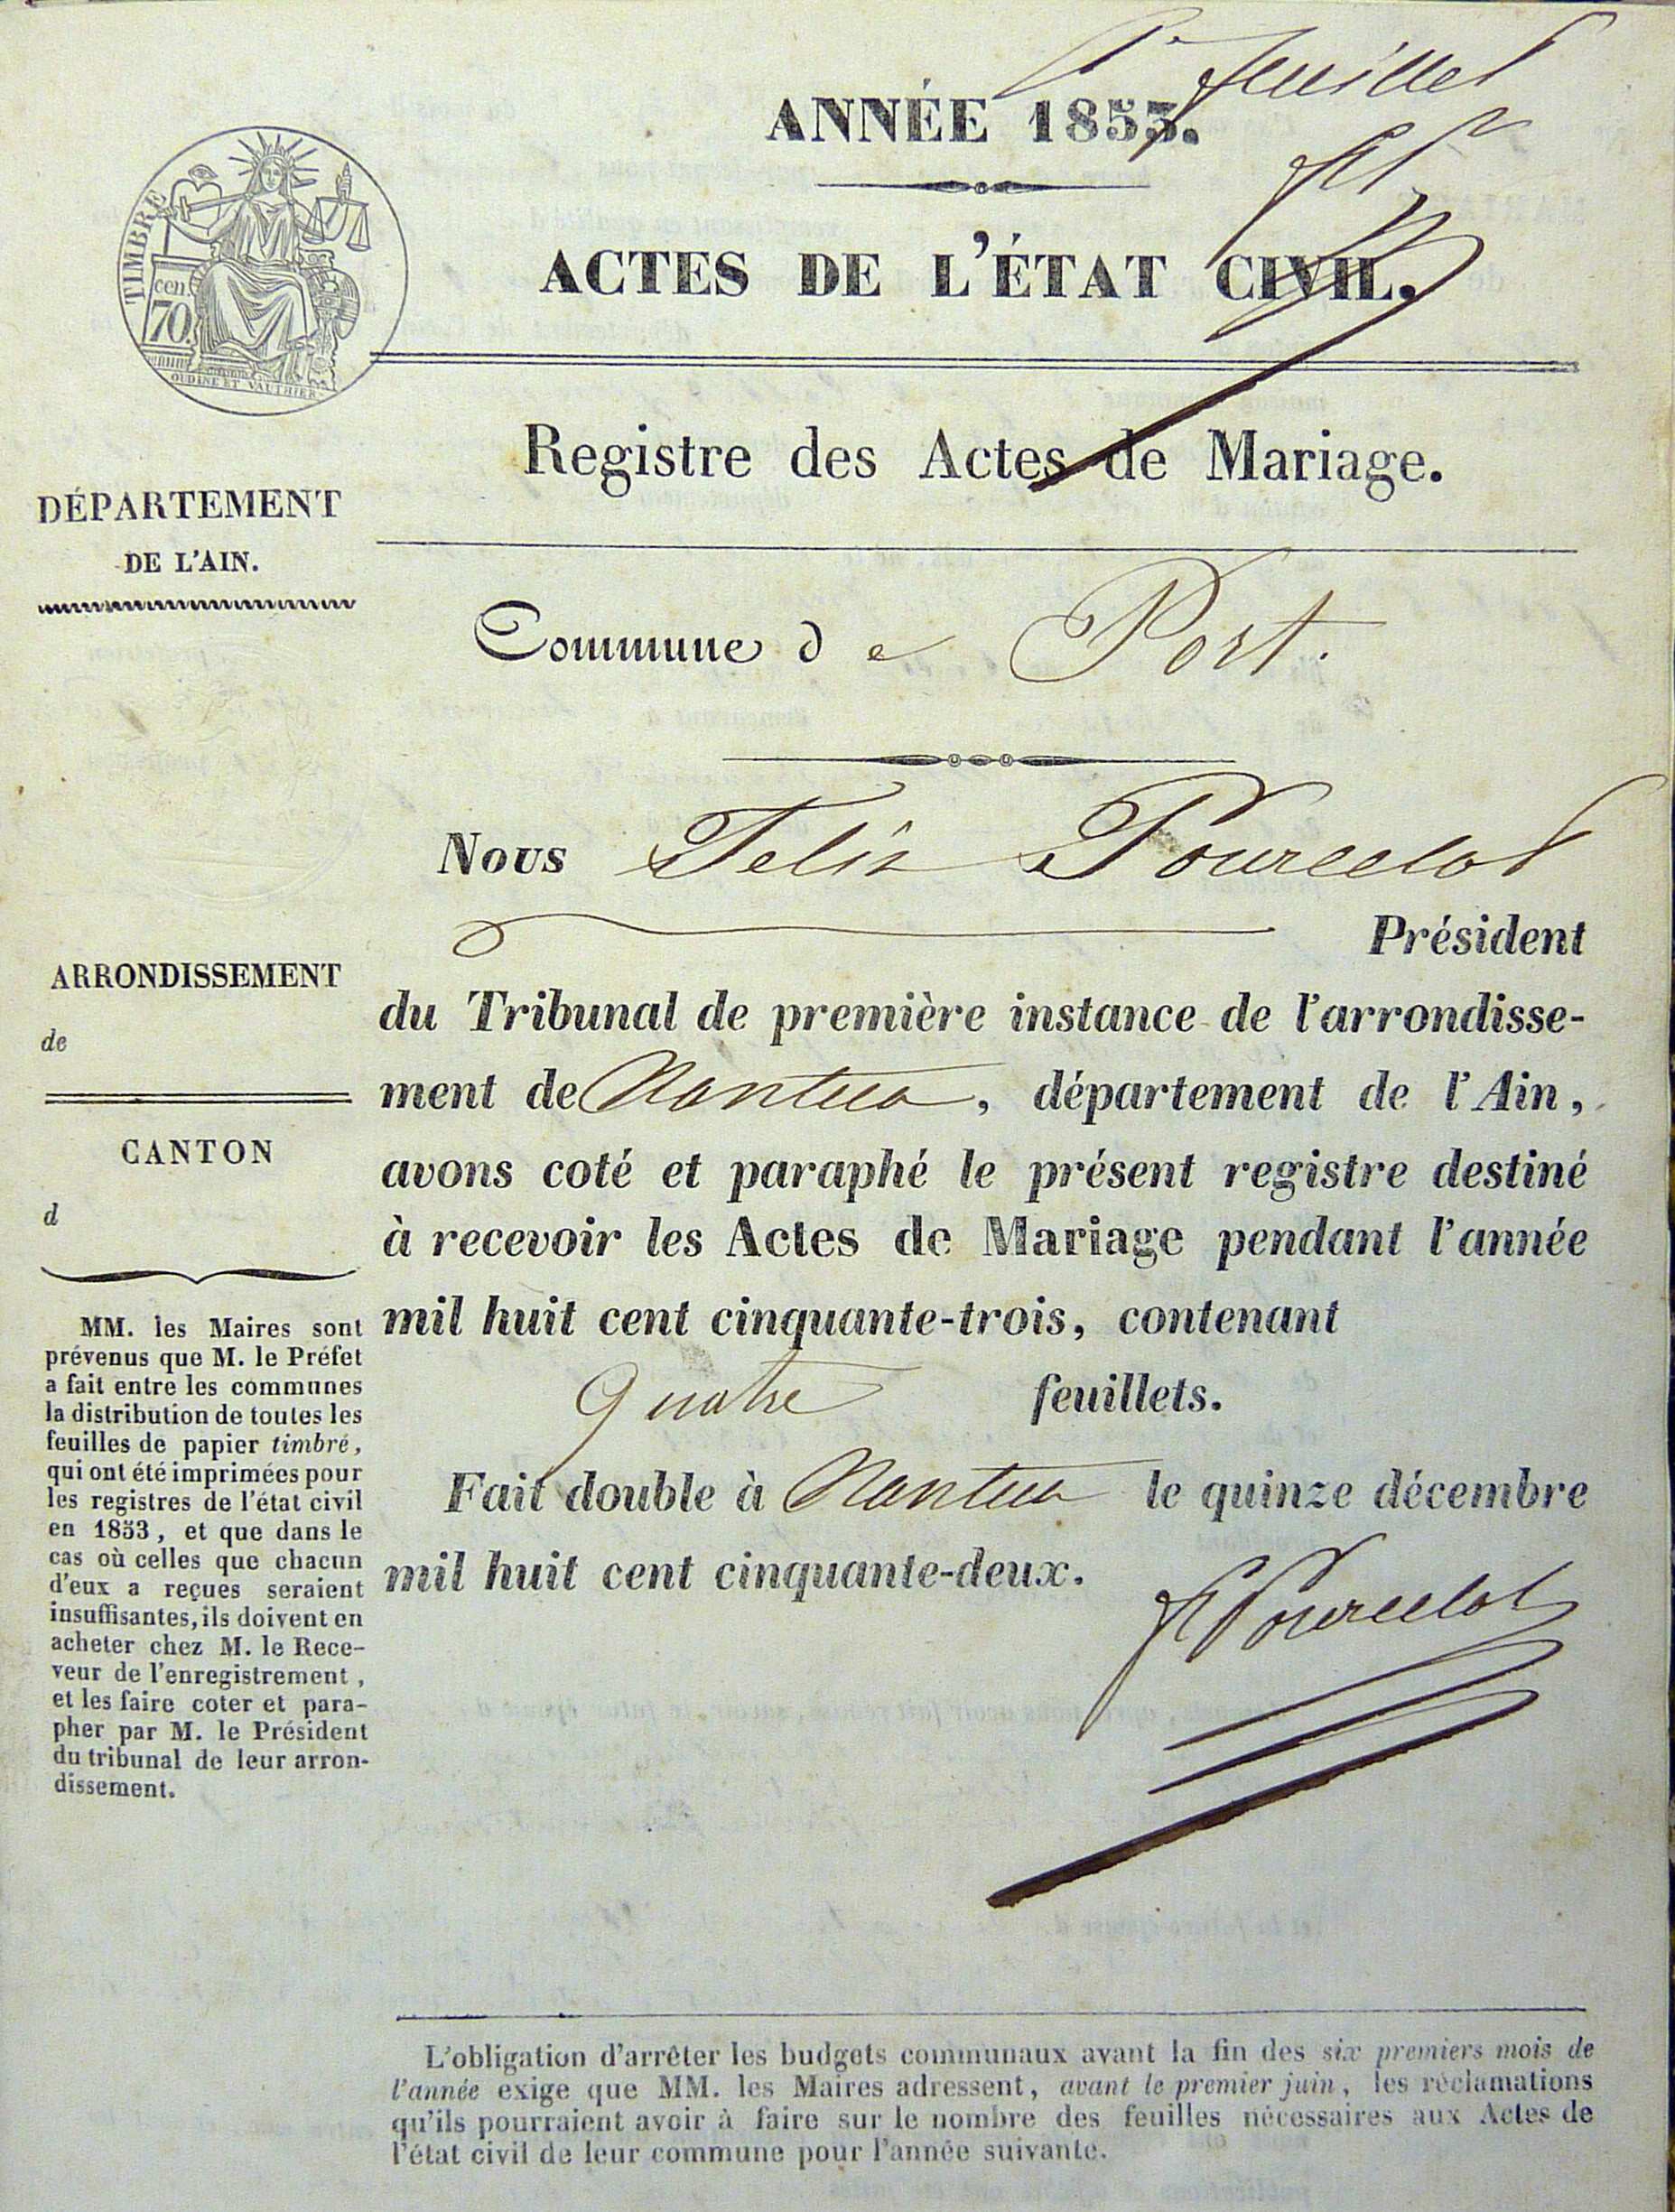 1er feuillet
ANNÉE 1853.
TIMBRE
cen.
70.
OUDINÉ ET VAUTHIER
ACTES DE L'ÉTAT CIVIL.
Registre des Actes de Mariage.
DÉPARTEMENT
DE L'AIN.
Commune de Port.
Nous Felix Pourcelot
Président
du Tribunal de première instance de l'arrondisse-
ment de Nantua, département de l'Ain,
avons coté et paraphé le présent registre destiné
à recevoir les Actes de Mariage pendant l'année
mil huit cent cinquante-trois, contenant
quatre feuillets.
Fait double à Nantua le quinze décembre
mil huit cent cinquante-deux.
F Pourcelot
ARRONDISSEMENT
de
CANTON
d
MM. les Maires sont
prévenus que M. le Préfet
a fait entre les communes
la distribution de toutes les
feuilles de papier timbré,
qui ont été imprimées pour
les registres de l'état civil
en 1853, et que dans le
cas où celles que chacun
d'eux a reçues seraient
insuffisantes, ils doivent en
acheter chez M. le Rece-
veur de l'enregistrement,
et les faire coter et para-
pher par M. le Président
du tribunal de leur arron-
dissement.
L'obligation d'arrêter les budgets communaux avant la fin des six premiers mois de
l'année exige que MM. les Maires adressent, avant le premier juin, les réclamations
qu'ils pourraient avoir à faire sur le nombre des feuilles nécessaires aux Actes de
l'état civil de leur commune pour l'année suivante.